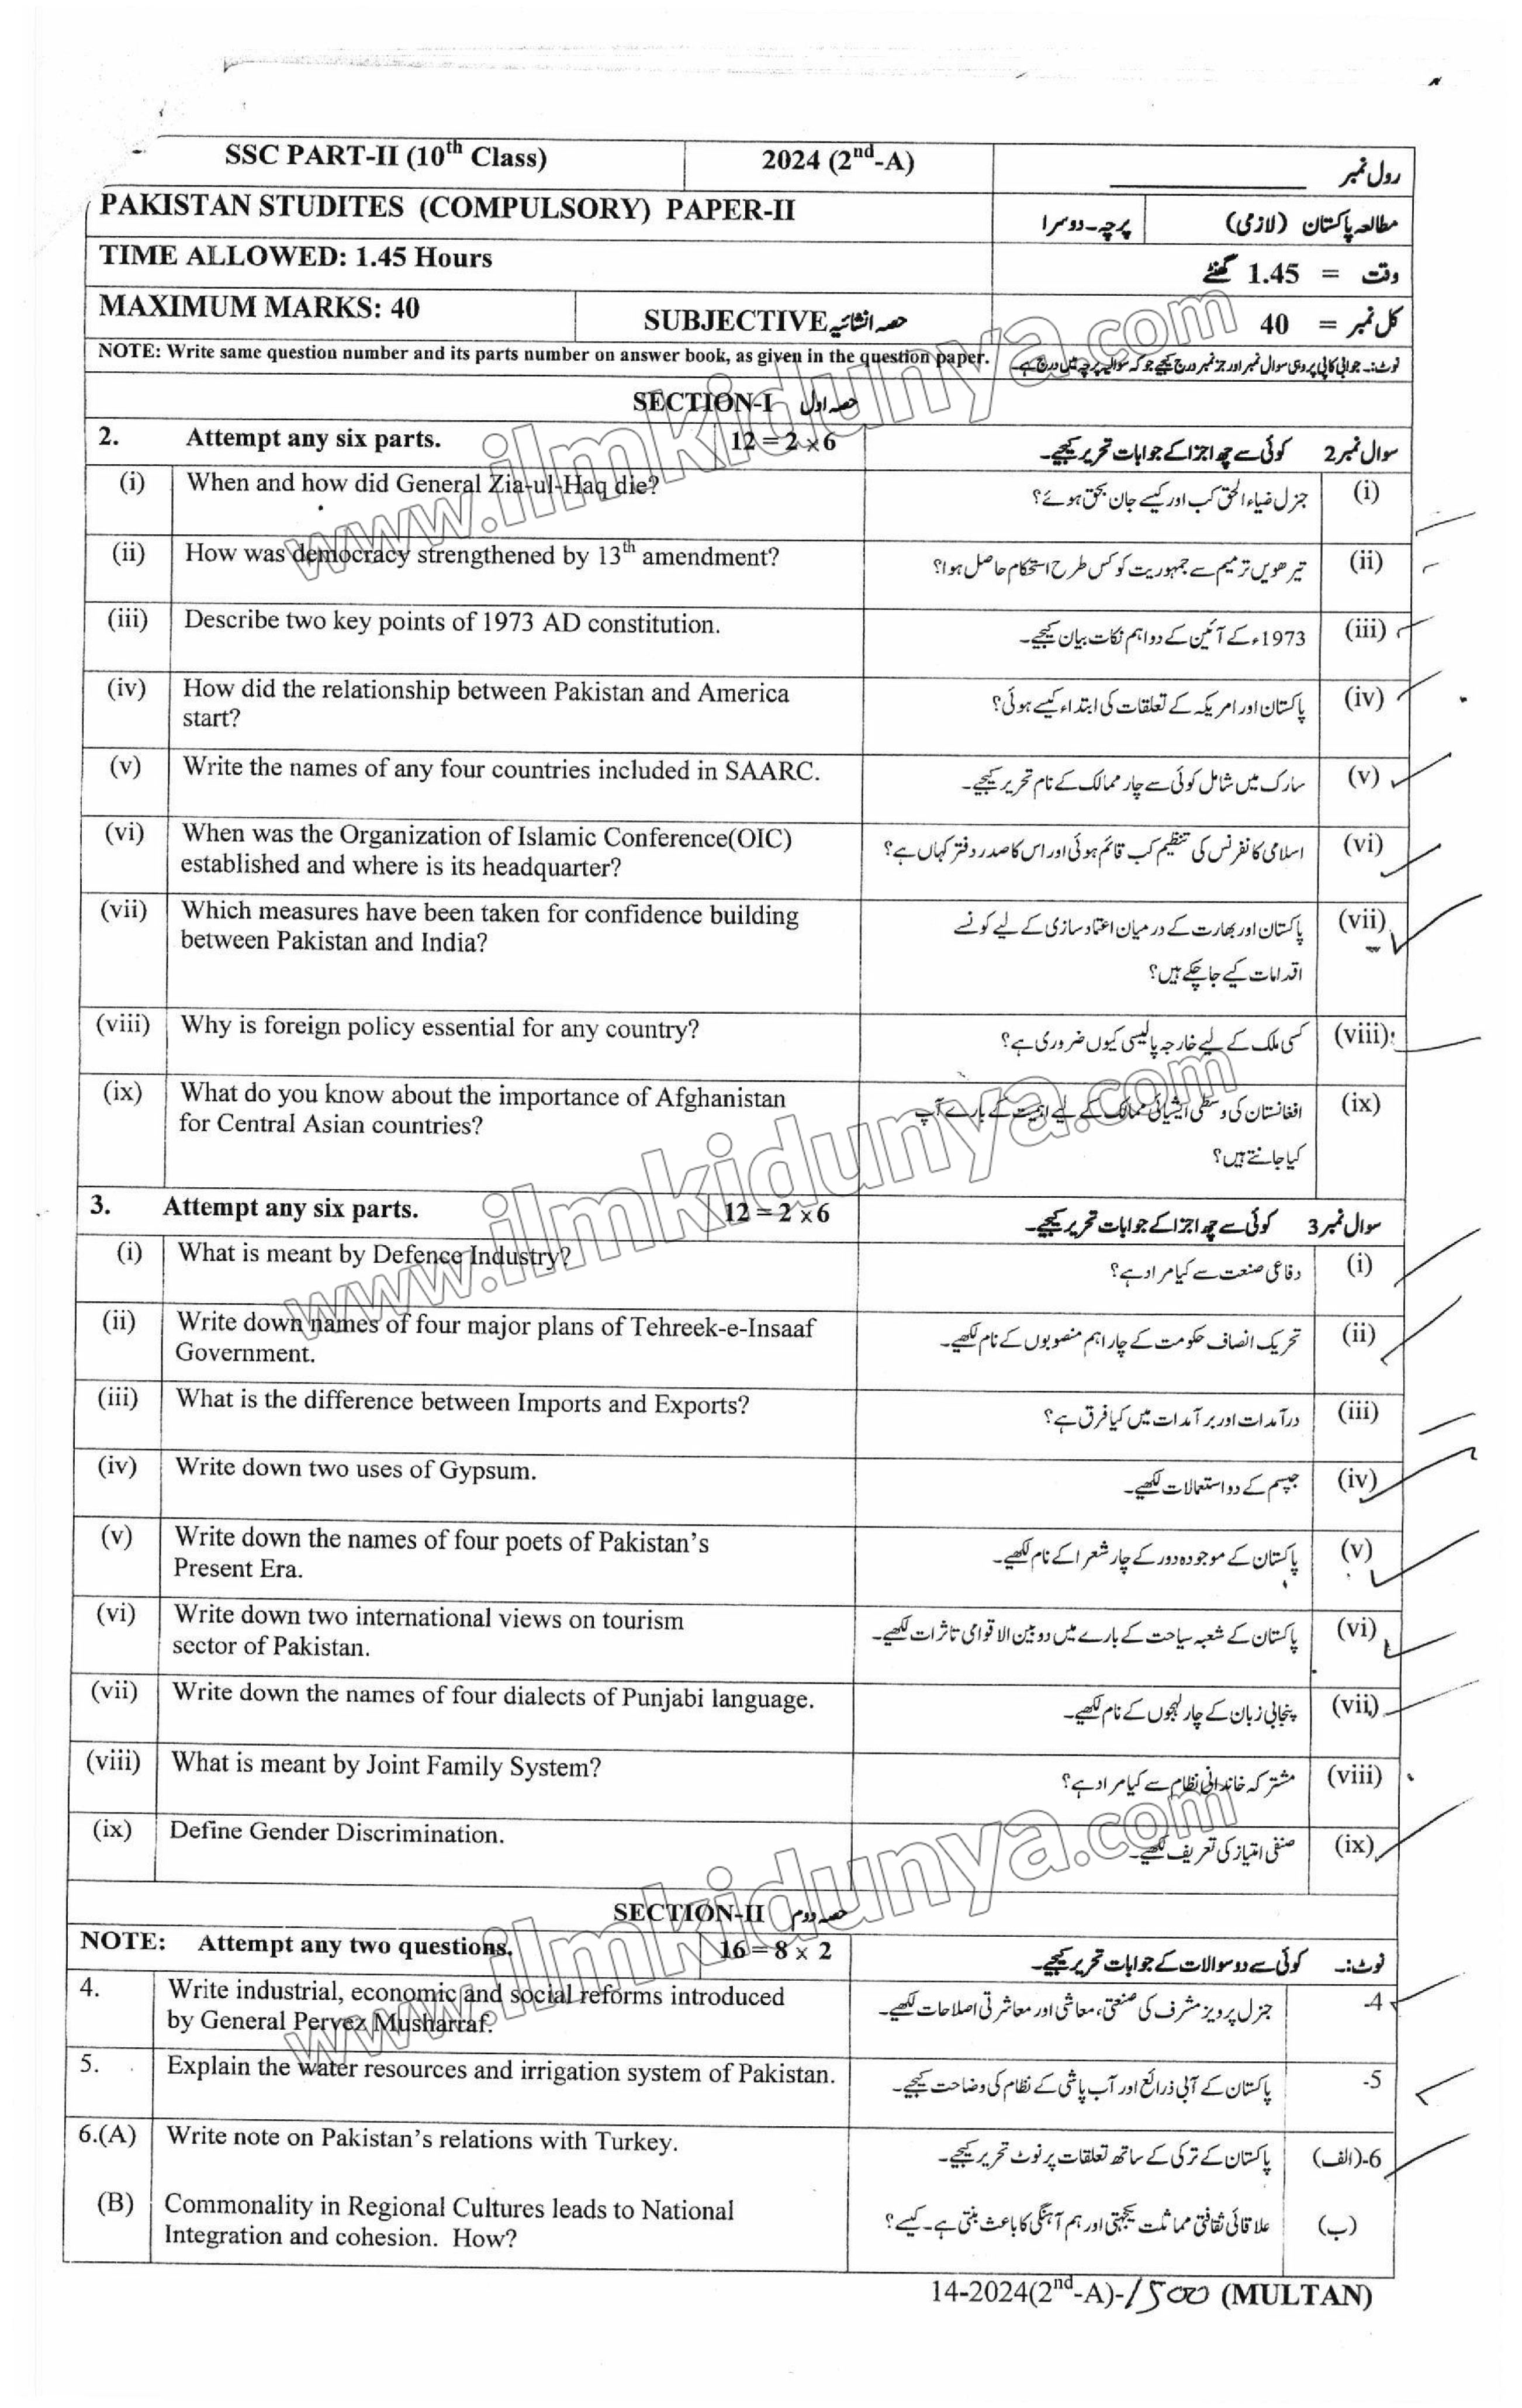 SSC PART-II (10th Class) 2024 (2nd-A) رول نمبر
PAKISTAN STUDITES (COMPULSORY) PAPER-II پرچہ-دوسرا مطالعہ پاکستان (لازمی)
TIME ALLOWED: 1.45 Hours وقت = 1.45 گھنٹے
MAXIMUM MARKS: 40 SUBJECTIVE حصہ انشائیہ کل نمبر = 40
NOTE: Write same question number and its parts number on answer book, as given in the question paper. نوٹ:۔ جوابی کاپی پر وہی سوال نمبر اور جز نمبر درج کیجیے جو کہ سوالیہ پرچہ میں درج ہے۔
SECTION-I حصہ اول
2. Attempt any six parts. 12 = 2 × 6 سوال نمبر 2 کوئی سے چھ اجزا کے جوابات تحریر کیجیے۔
(i) When and how did General Zia-ul-Haq die? جنرل ضیاء الحق کب اور کیسے جان بحق ہوئے؟ (i)
(ii) How was democracy strengthened by 13th amendment? تیرھویں ترمیم سے جمہوریت کو کس طرح استحکام حاصل ہوا؟ (ii)
(iii) Describe two key points of 1973 AD constitution. 1973ء کے آئین کے دو اہم نکات بیان کیجیے۔ (iii)
(iv) How did the relationship between Pakistan and America پاکستان اور امریکہ کے تعلقات کی ابتداء کیسے ہوئی؟ (iv)
start?
(v) Write the names of any four countries included in SAARC. سارک میں شامل کوئی سے چار ممالک کے نام تحریر کیجیے۔ (v)
(vi) When was the Organization of Islamic Conference(OIC) اسلامی کانفرنس کی تنظیم کب قائم ہوئی اور اس کا صدر دفتر کہاں ہے؟ (vi)
established and where is its headquarter?
(vii) Which measures have been taken for confidence building پاکستان اور بھارت کے درمیان اعتماد سازی کے لیے کونسے (vii)
between Pakistan and India? اقدامات کیے جا چکے ہیں؟
(viii) Why is foreign policy essential for any country? کسی ملک کے لیے خارجہ پالیسی کیوں ضروری ہے؟ (viii)
(ix) What do you know about the importance of Afghanistan افغانستان کی وسطی ایشیائی ممالک کے لیے اہمیت کے بارے آپ (ix)
for Central Asian countries? کیا جانتے ہیں؟
3. Attempt any six parts. 12 = 2 × 6 سوال نمبر 3 کوئی سے چھ اجزا کے جوابات تحریر کیجیے۔
(i) What is meant by Defence Industry? دفاعی صنعت سے کیا مراد ہے؟ (i)
(ii) Write down names of four major plans of Tehreek-e-Insaaf تحریک انصاف حکومت کے چار اہم منصوبوں کے نام لکھیے۔ (ii)
Government.
(iii) What is the difference between Imports and Exports? درآمدات اور برآمدات میں کیا فرق ہے؟ (iii)
(iv) Write down two uses of Gypsum. جپسم کے دو استعمالات لکھیے۔ (iv)
(v) Write down the names of four poets of Pakistan's پاکستان کے موجودہ دور کے چار شعرا کے نام لکھیے۔ (v)
Present Era.
(vi) Write down two international views on tourism پاکستان کے شعبہ سیاحت کے بارے میں دو بین الاقوامی تاثرات لکھیے۔ (vi)
sector of Pakistan.
(vii) Write down the names of four dialects of Punjabi language. پنجابی زبان کے چار لہجوں کے نام لکھیے۔ (vii)
(viii) What is meant by Joint Family System? مشترکہ خاندانی نظام سے کیا مراد ہے؟ (viii)
(ix) Define Gender Discrimination. صنفی امتیاز کی تعریف لکھیے۔ (ix)
SECTION-II حصہ دوم
NOTE: Attempt any two questions. 16 = 8 × 2 نوٹ:۔ کوئی سے دو سوالات کے جوابات تحریر کیجیے۔
4. Write industrial, economic and social reforms introduced جنرل پرویز مشرف کی صنعتی، معاشی اور معاشرتی اصلاحات لکھیے۔ -4
by General Pervez Musharraf.
5. Explain the water resources and irrigation system of Pakistan. پاکستان کے آبی ذرائع اور آب پاشی کے نظام کی وضاحت کیجیے۔ -5
6.(A) Write note on Pakistan's relations with Turkey. پاکستان کے ترکی کے ساتھ تعلقات پر نوٹ تحریر کیجیے۔ 6-(الف)
(B) Commonality in Regional Cultures leads to National علاقائی ثقافتی مماثلت یکجہتی اور ہم آہنگی کا باعث بنتی ہے۔ کیسے؟ (ب)
Integration and cohesion. How?
14-2024(2nd-A)-1500 (MULTAN)
www.ilmkidunya.com
www.ilmkidunya.com
www.ilmkidunya.com